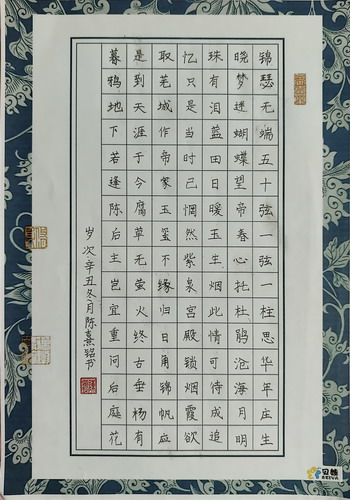 锦瑟无端五十弦一弦一柱思华年庄生
晓梦迷蝴蝶望帝春心托杜鹃沧海月明
珠有泪蓝田日暖玉生烟此情可待成追
忆只是当时己惘然紫泉宫殿锁烟霞欲
取芜城作帝家玉玺不缘归日角锦帆应
是到天涯于今腐草无萤火终古垂杨有
暮鸦地下若逢陈后主岂宜重问后庭花
岁次辛丑冬月陈熹铭书